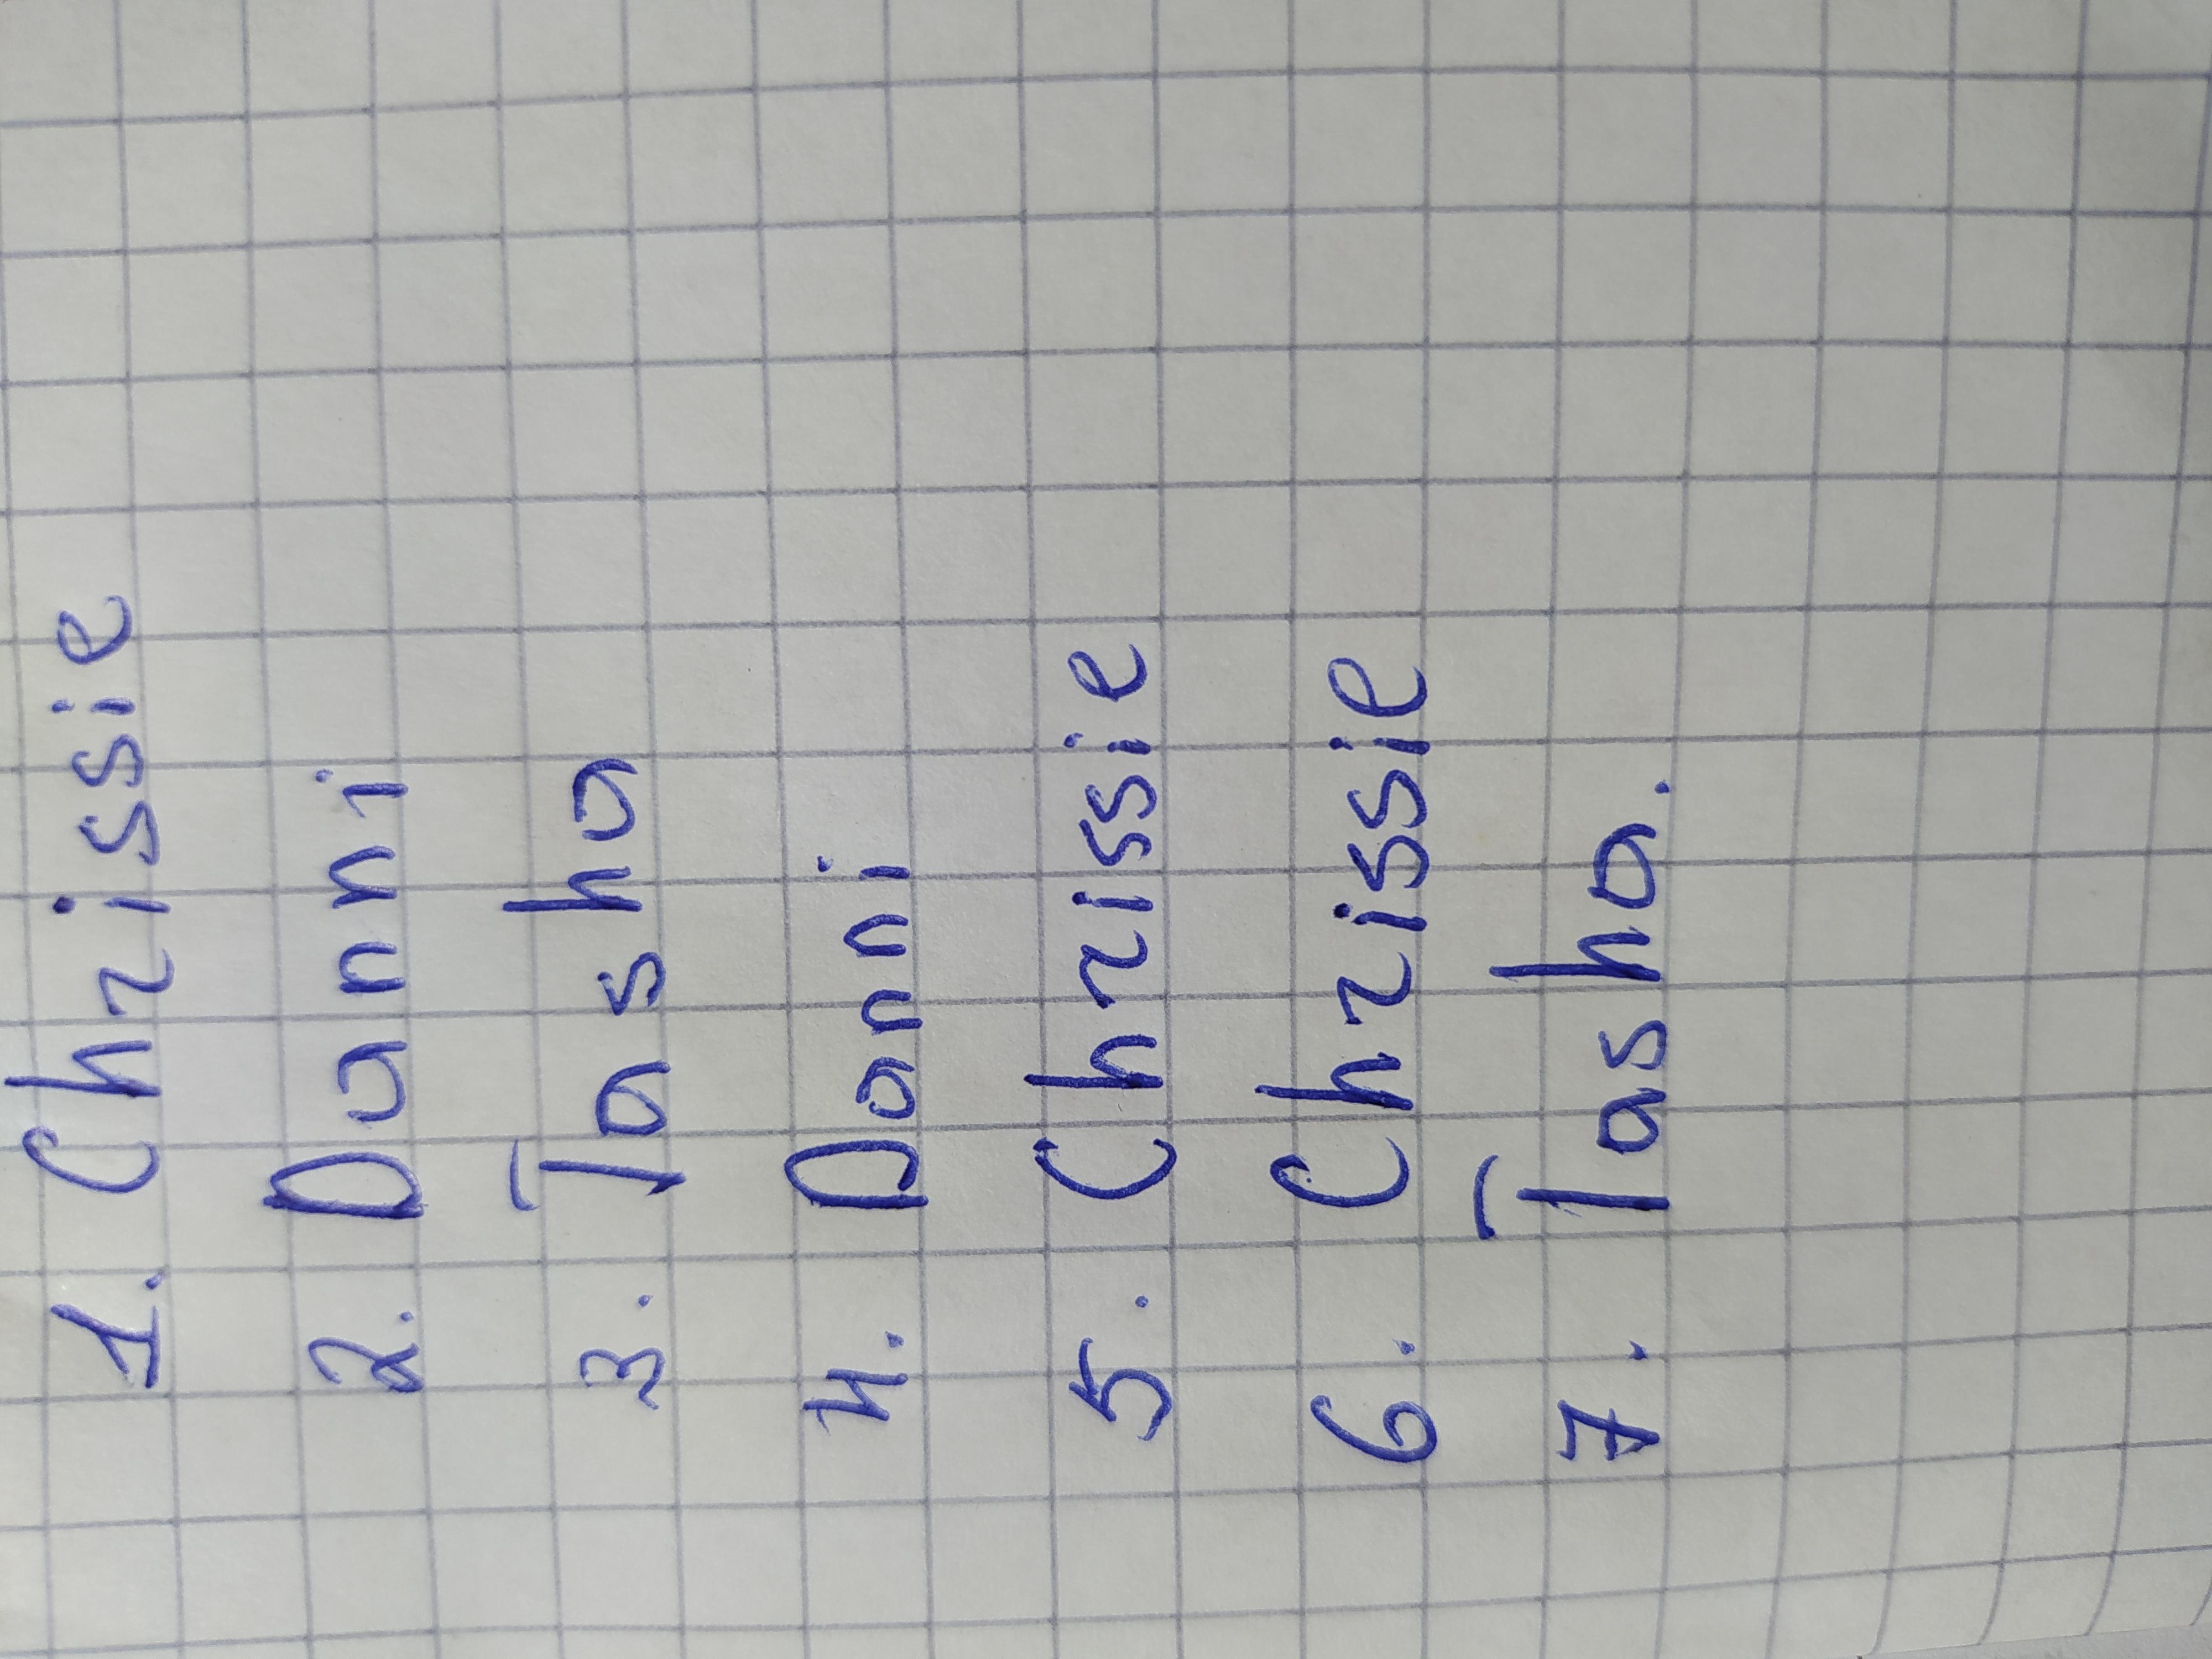 1. Chrissie
2. Danni
3. Tasha
4. Danni
5. Chrissie
6. Chrissie
7. Tasha.